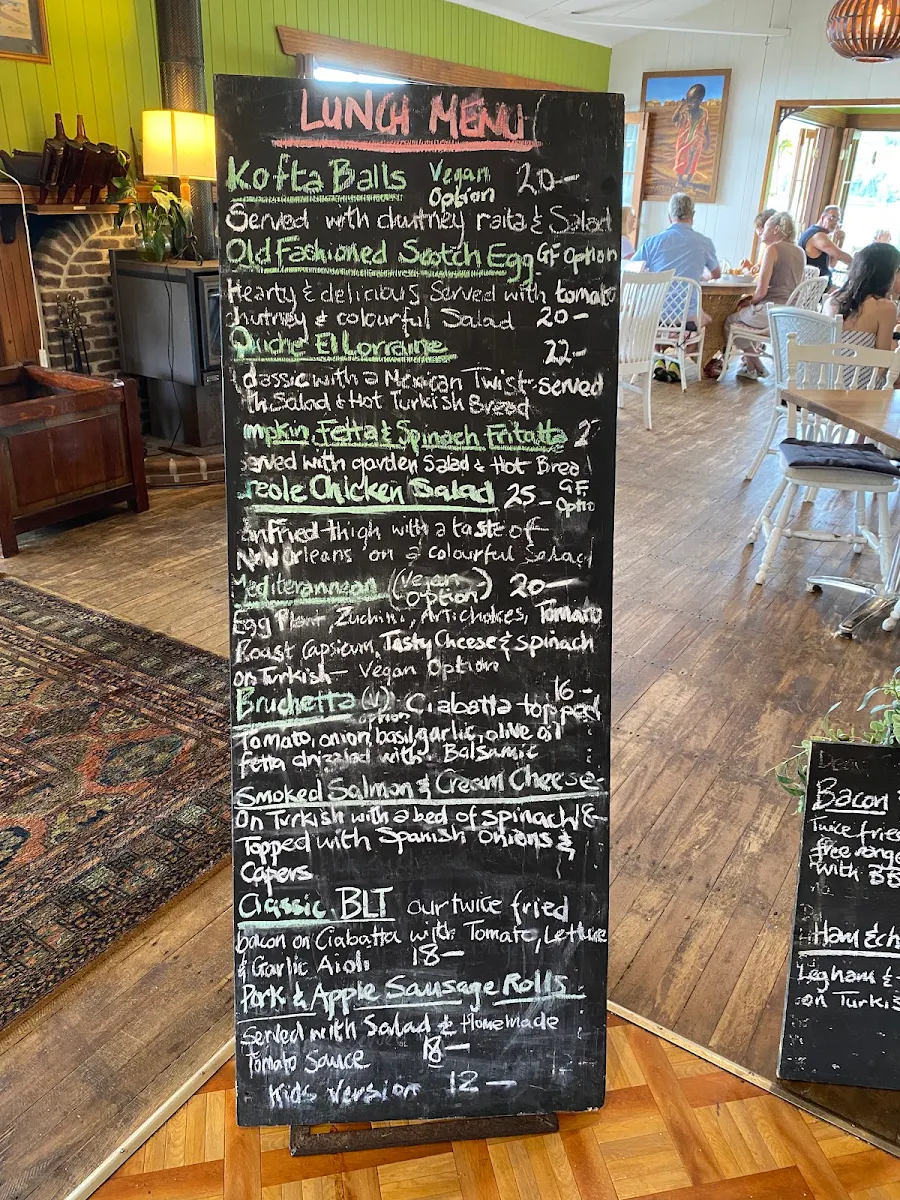 LUNCH MENU
Kofta Balls Vegan Option 20-
Served with chutney raita & Salad
Old Fashioned Scotch Egg GF option
Hearty & delicious Served with tomato
chutney & colourful Salad 20-
Quiche El Lorraine 22-
classic with a Mexican Twist served
ith Salad & Hot Turkish Bread
mpkin Fetta & Spinach Fritatta 2
erved with garden Salad & Hot Brea
reole Chicken Salad 25- GF Optio
anfried thigh with a taste of
New Orleans on a colourful Salad
Mediterannean (Vegan Option) 20-
Egg Plant, Zuchini, Artichokes, Tomato
Roast Capsicum, Tasty Cheese & Spinach
on Turkish- Vegan Option
16-
Bruchetta (V) option Ciabatta topped
Tomato, onion, basil, garlic, olive oil
fetta drizzled with Balsamic
Smoked Salmon & Cream Cheese-
On Turkish with a bed of spinach 18-
Topped with Spanish Onions &
Capers
Classic BLT our twice fried
bacon on Ciabatta with Tomato, Lettuce
& Garlic Aioli 18-
Pork & Apple Sausage Rolls
Served with Salad & Homemade
Tomato Sauce 18-
Kids Version 12-
Bacon
Twice frie
free range
with BB
Ham & ch
Leg ham &
on Turkis